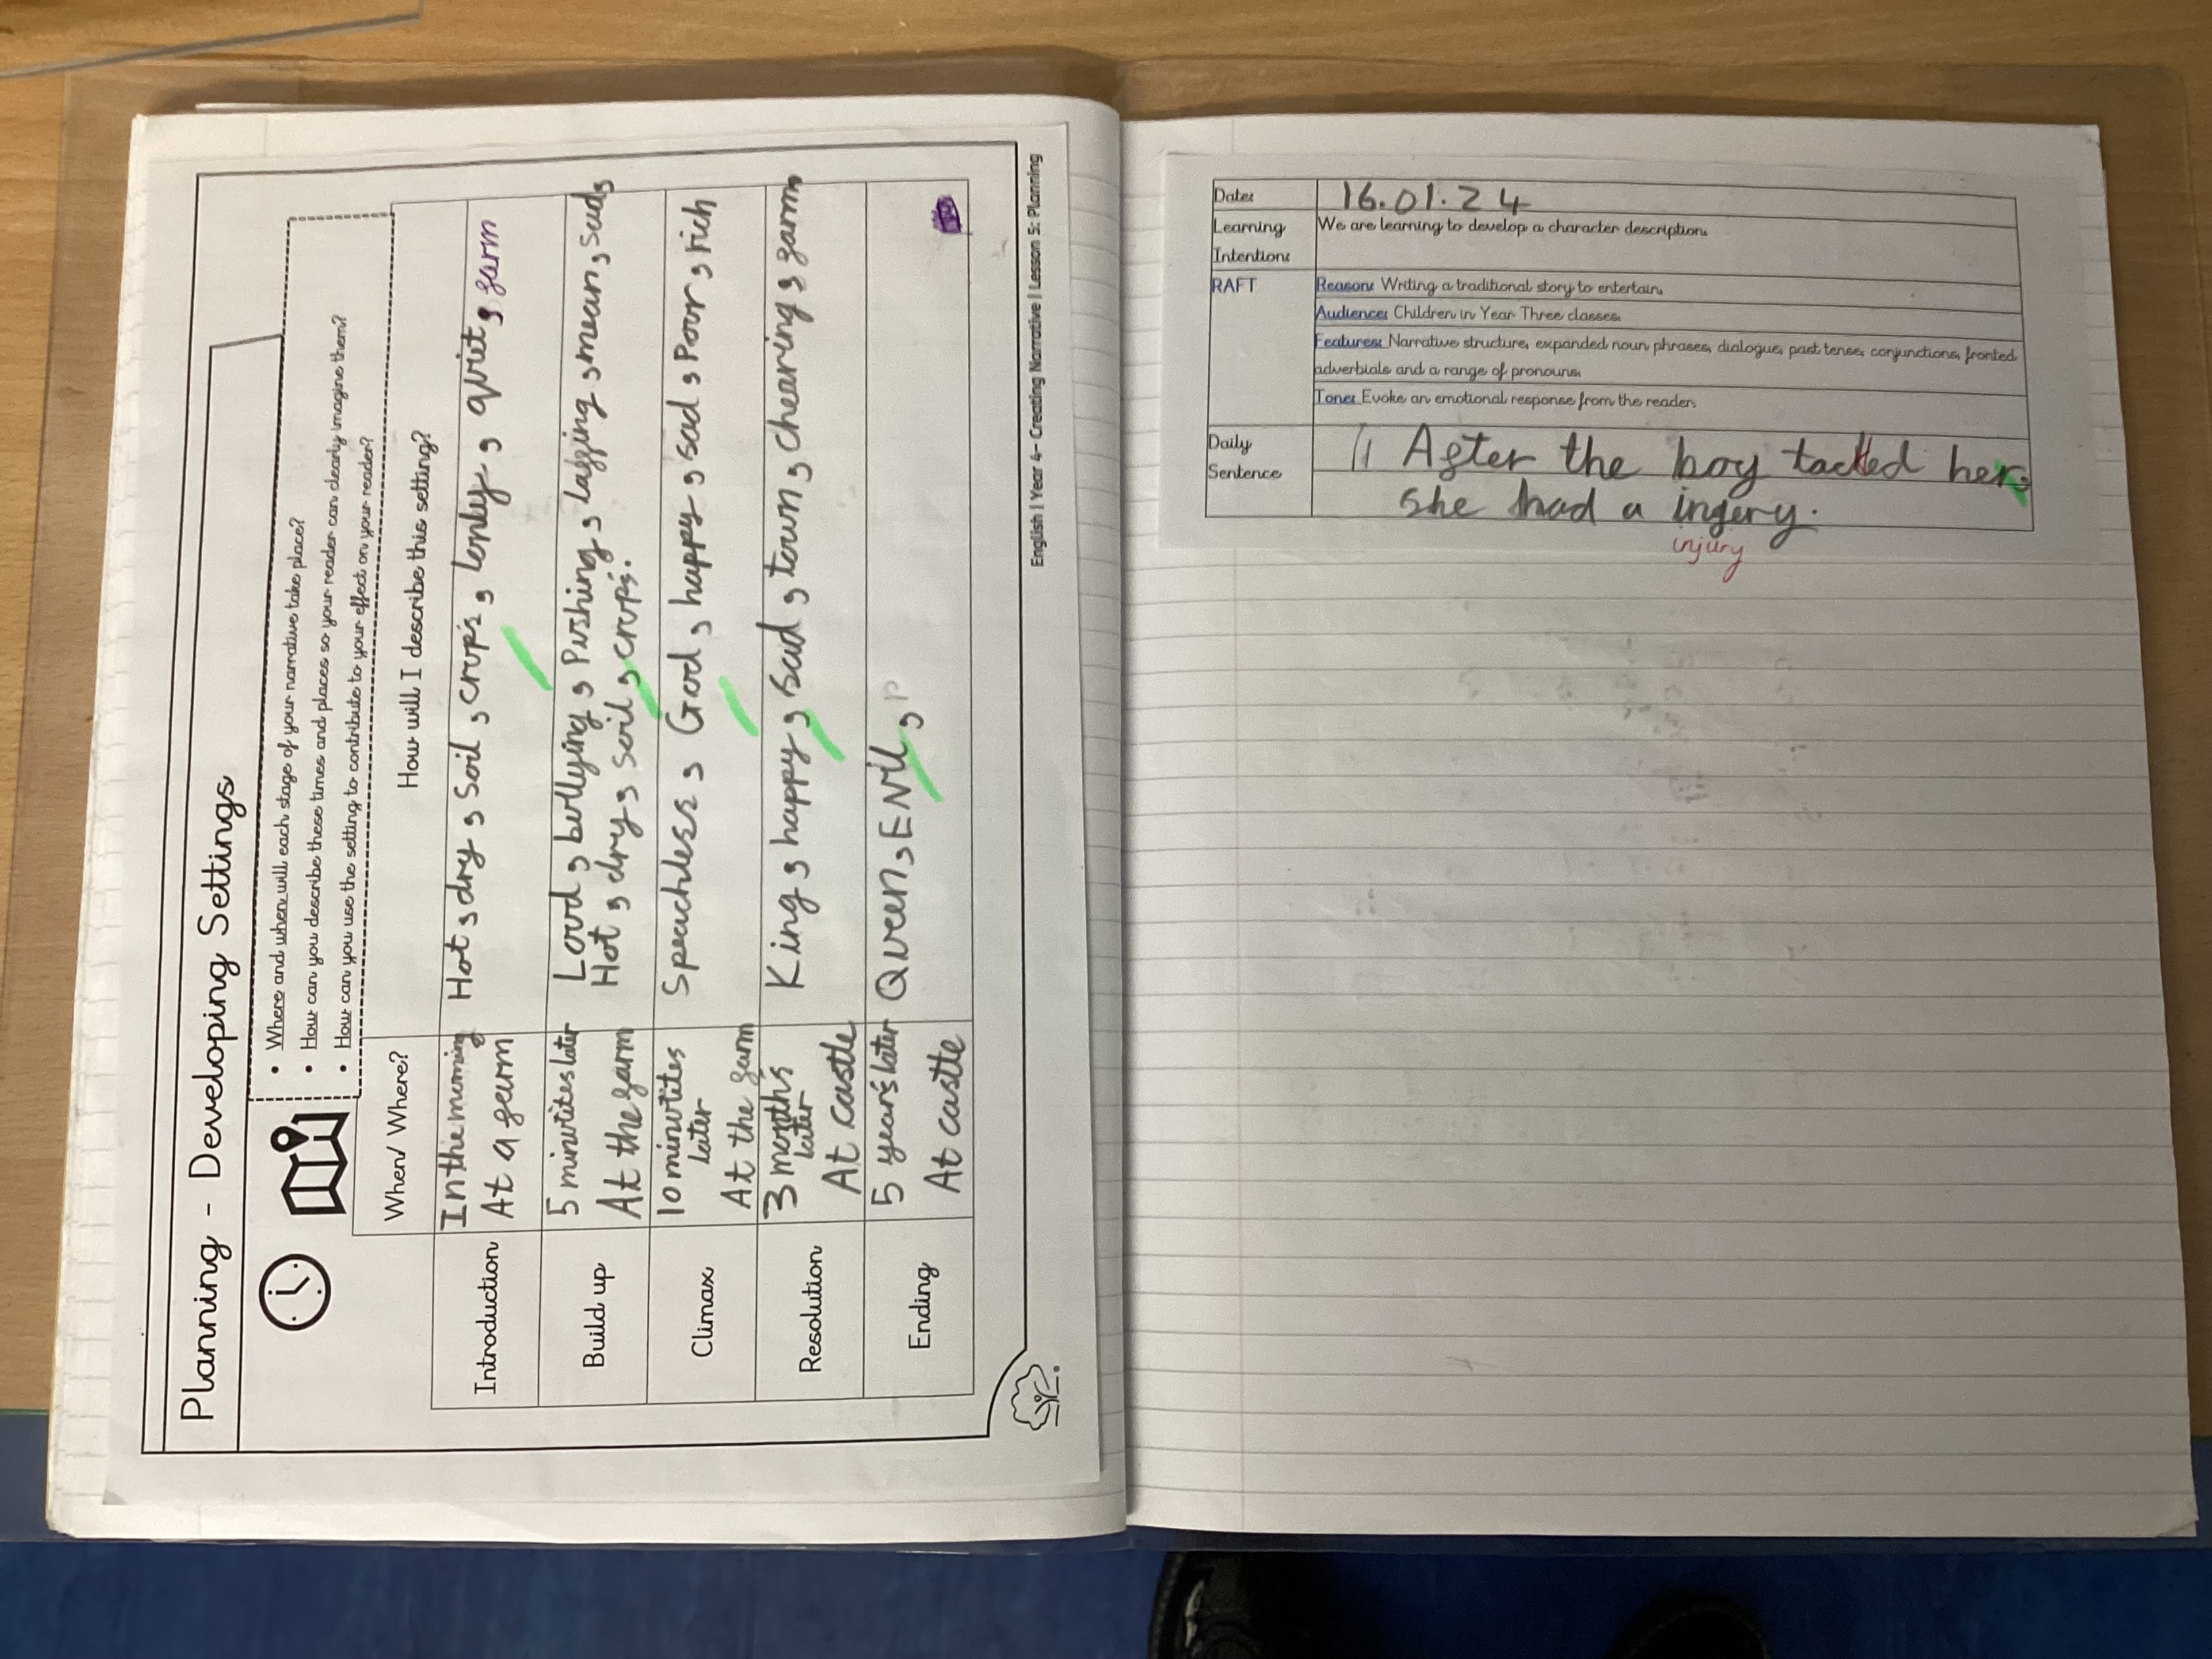 Planning - Developing Settings
• Where and when will each stage of your narrative take place?
• How can you describe these times and places so your reader can clearly imagine them?
• How can you use the setting to contribute to your effect on your reader?
When/ Where?
How will I describe this setting?
Introduction
In the morning
At a farm
Hot, dry, Soil, crop's, lonley, qviet, farm
Build up
5 minvites later
At the farm
Lovd, bullying, Pushing, laffing, mean, sad,
Hot, dry, soil, crop's.
Climax
10 minvites
later
At the farm
Speachless, Good, happy, sad, Poor, rich
Resolution
3 month's
later
At castle
King, happy, sad, town, chearing, farm
Ending
5 year's later
At castle
Qveen, ENvil, p
English | Year 4- Creating Narrative | Lesson 5: Planning
Date: 16.01.24
Learning Intention: We are learning to develop a character description.
RAFT
Reason: Writing a traditional story to entertain.
Audience: Children in Year Three classes.
Features: Narrative structure, expanded noun phrases, dialogue, past tense, conjunctions, fronted
adverbials and a range of pronouns.
Tone: Evoke an emotional response from the reader.
Daily
Sentence
After the boy tackled her,
she had a ingery.
injury